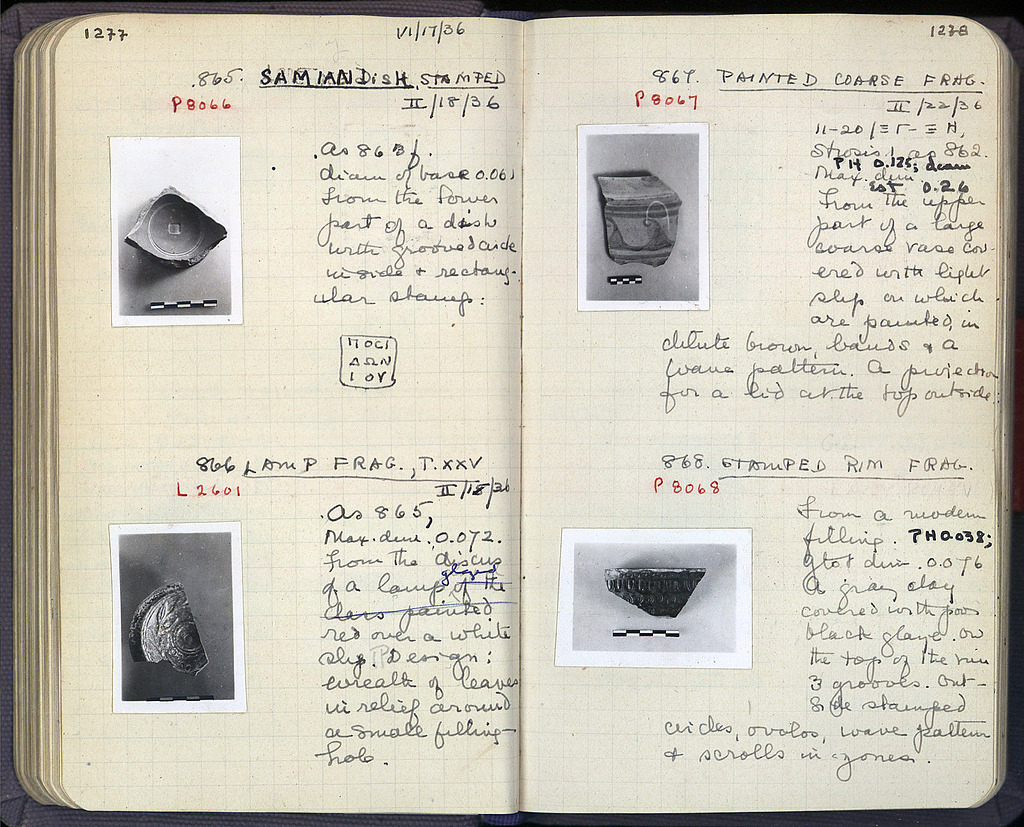 1277
VI/17/36
865. SAMIAN DISH, STAMPED
P 8066
II/18/36
As 863.
diam of base 0.061
From the lower
part of a dish
with grooved circle
inside + rectang-
ular stamp:
ΠΟCΙ
ΔΩΝ
ΙΟΥ
866 LAMP FRAG., T. XXV
L 2601
II/18/36
As 865,
Max. dim. 0.072.
From the discus
of a lamp glazed of the
class painted
red over a white
slip. Design:
wreath of leaves
in relief around
a small filling-
hole.
1278
867. PAINTED COARSE FRAG.
P 8067
II/22/36
11-20/ΞΓ-ΞΗ,
Strosis 1, as 862.
PH 0.125; diam
Max. dim.
est 0.26
From the upper
part of a large
coarse vase cov-
ered with light
slip on which
are painted, in
dilute brown, bands + a
wave pattern. A projection
for a lid at the top outside.
868. STAMPED RIM FRAG.
P 8068
From a modern
filling. PH 0.038;
Gtst dim. 0.076
A gray clay
covered with poor
black glaze. On
the top of the rim
3 grooves. Out-
side stamped
circles, ovolos, wave pattern
+ scrolls in zones.